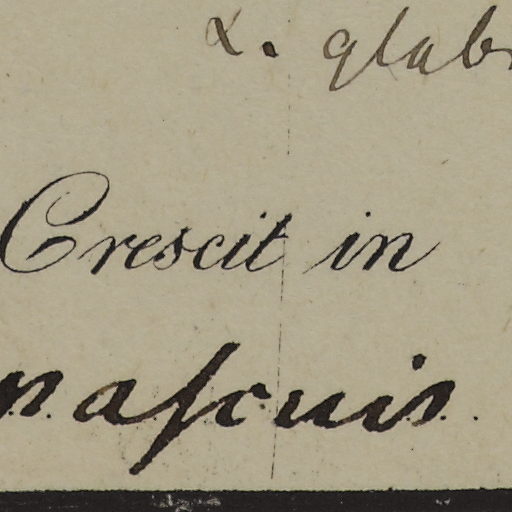 α. glabr
Crescit in
paſcuis.